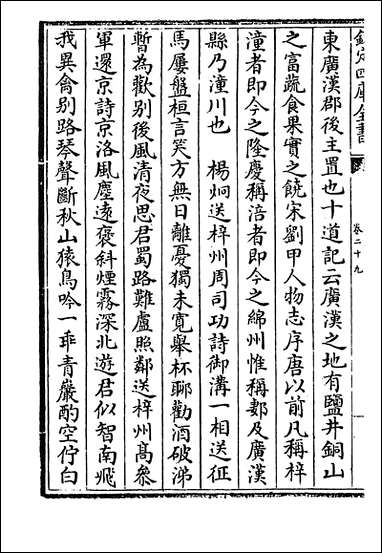 欽定四庫全書
卷二十九
東廣漢郡後主置也十道記云廣漢之地有鹽井銅山
之富蔬食果實之饒宋劉甲人物志序唐以前凡稱梓
潼者即今之隆慶稱涪者即今之綿州惟稱郪及廣漢
縣乃潼川也 楊炯送梓州周司功詩御溝一相送征
馬屢盤桓言笑方無日離憂獨未寬舉杯聊勸酒破涕
暫為歡別後風清夜思君蜀路難盧照鄰送梓州高參
軍還京詩京洛風塵遠褒斜煙霧深北遊君似智南飛
我異禽別路琴聲斷秋山猿鳥吟一乖青巖酌空佇白